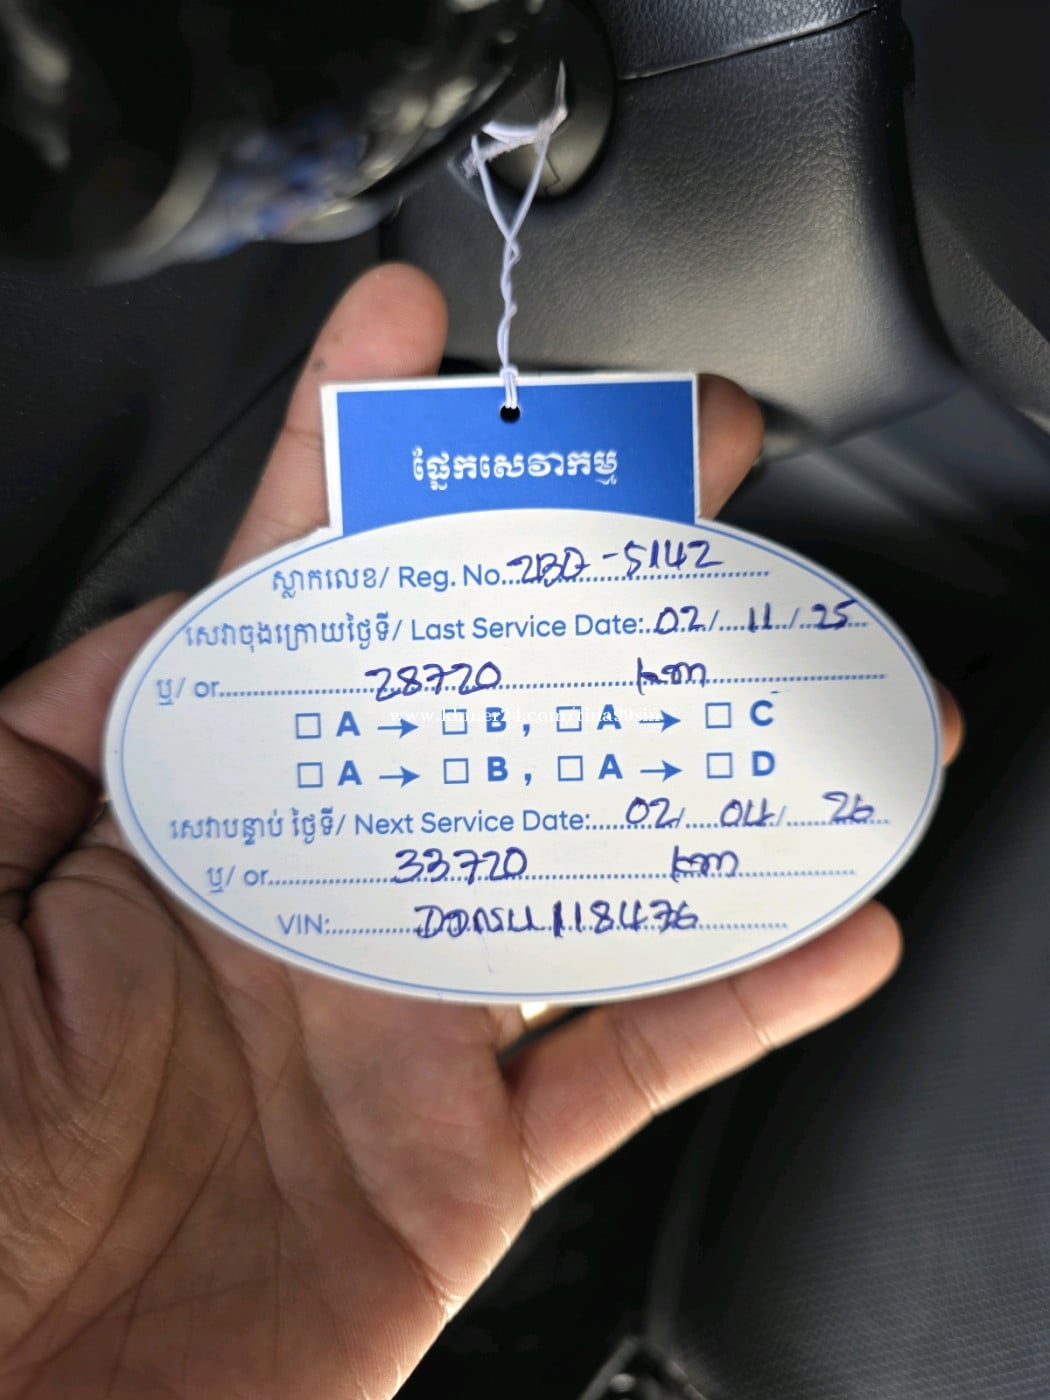 ផ្នែកសេវាកម្ម
ស្លាកលេខ/ Reg. No...2BD -5142
សេវាចុងក្រោយថ្ងៃទី/ Last Service Date:..02./....11../..25..
ឬ/ or..................28720..................km..................
☐ A → ☐ B , ☐ A → ☐ C
www.khmer24.com/
☐ A → ☐ B , ☐ A → ☐ D
សេវាបន្ទាប់ ថ្ងៃទី/ Next Service Date:.....02/.....04/......26..
ឬ/ or..................33720..................km..................
VIN:............118476............